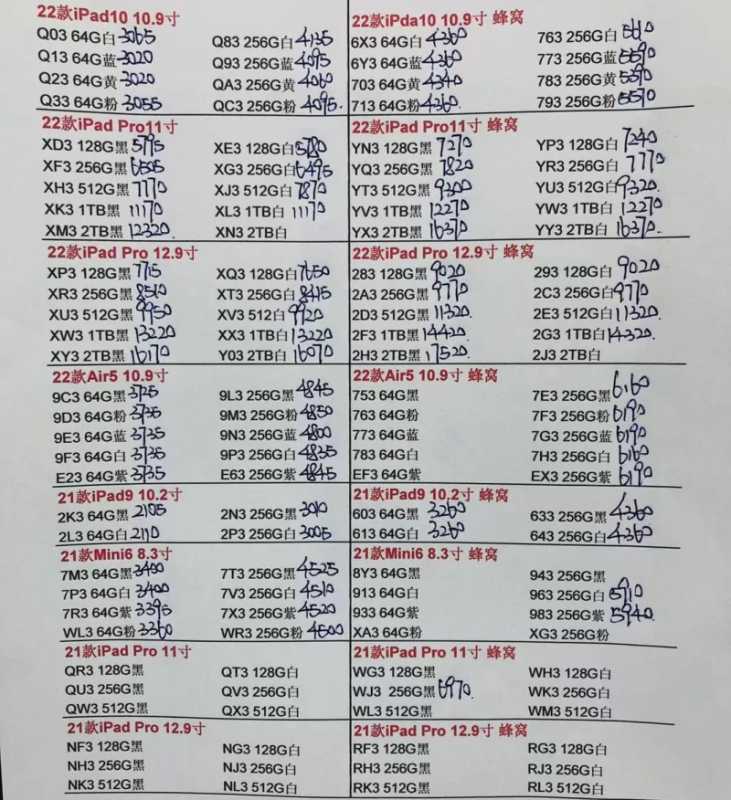 22款iPad10 10.9寸
Q03 64G白 3065 Q83 256G白 4135
Q13 64G蓝 3020 Q93 256G蓝 4095
Q23 64G黄 3020 QA3 256G黄 4060
Q33 64G粉 3055 QC3 256G粉 4095.
22款iPda10 10.9寸 蜂窝
6X3 64G白 4360 763 256G白 5610
6Y3 64G蓝 4360 773 256G蓝 5590
703 64G黄 4340 783 256G黄 5590
713 64G粉 4360. 793 256G粉 5570
22款iPad Pro11寸
XD3 128G黑 5795 XE3 128G白 5780
XF3 256G黑 6505 XG3 256G白 6495
XH3 512G黑 7770 XJ3 512G白 7870
XK3 1TB黑 11170 XL3 1TB白 11170
XM3 2TB黑 12320. XN3 2TB白
22款iPad Pro11寸 蜂窝
YN3 128G黑 7270 YP3 128G白 7240
YQ3 256G黑 7820 YR3 256G白 7770
YT3 512G黑 9300 YU3 512G白 9320.
YV3 1TB黑 12270 YW3 1TB白 12270
YX3 2TB黑 16370 YY3 2TB白 16370.
22款iPad Pro 12.9寸
XP3 128G黑 7715 XQ3 128G白 7650
XR3 256G黑 8510 XT3 256G白 8415
XU3 512G黑 9950 XV3 512白 9920
XW3 1TB黑 13220 XX3 1TB白 13220
XY3 2TB黑 16170 Y03 2TB白 16070
22款iPad Pro 12.9寸 蜂窝
283 128G黑 9020 293 128G白 9020
2A3 256G黑 9770 2C3 256G白 9770
2D3 512G黑 11320. 2E3 512G白 11320.
2F3 1TB黑 14420 2G3 1TB白 14320.
2H3 2TB黑 17520. 2J3 2TB白
22款Air5 10.9寸
9C3 64G黑 3725 9L3 256G黑 4845
9D3 64G粉 3735 9M3 256G粉 4850
9E3 64G蓝 3735 9N3 256G蓝 4800
9F3 64G白 3735 9P3 256G白 4835
E23 64G紫 3735 E63 256G紫 4845
22款Air5 10.9寸 蜂窝
753 64G黑 7E3 256G黑 6160
763 64G粉 7F3 256G粉 6190
773 64G蓝 7G3 256G蓝 6190
783 64G白 7H3 256G白 6160
EF3 64G紫 EX3 256G紫 6190
21款iPad9 10.2寸
2K3 64G黑 2105 2N3 256G黑 3010
2L3 64G白 2110 2P3 256G白 3005
21款iPad9 10.2寸 蜂窝
603 64G黑 3260 633 256G黑 4360
613 64G白 3260 643 256G白 4360
21款Mini6 8.3寸
7M3 64G黑 3400 7T3 256G黑 4525
7P3 64G白 3400 7V3 256G白 4510
7R3 64G紫 3395 7X3 256G紫 4520
WL3 64G粉 3360 WR3 256G粉 4500
21款Mini6 8.3寸 蜂窝
8Y3 64G黑 943 256G黑
913 64G白 963 256G白 5910
933 64G紫 983 256G紫 5940.
XA3 64G粉 XG3 256G粉
21款iPad Pro 11寸
QR3 128G黑 QT3 128G白
QU3 256G黑 QV3 256G白
QW3 512G黑 QX3 512G白
21款iPad Pro 11寸 蜂窝
WG3 128G黑 WH3 128G白
WJ3 256G黑 6970. WK3 256G白
WL3 512G黑 WM3 512G白
21款iPad Pro 12.9寸
NF3 128G黑 NG3 128G白
NH3 256G黑 NJ3 256G白
NK3 512G黑 NL3 512G白
21款iPad Pro 12.9寸 蜂窝
RF3 128G黑 RG3 128G白
RH3 256G黑 RJ3 256G白
RK3 512G黑 RL3 512G白